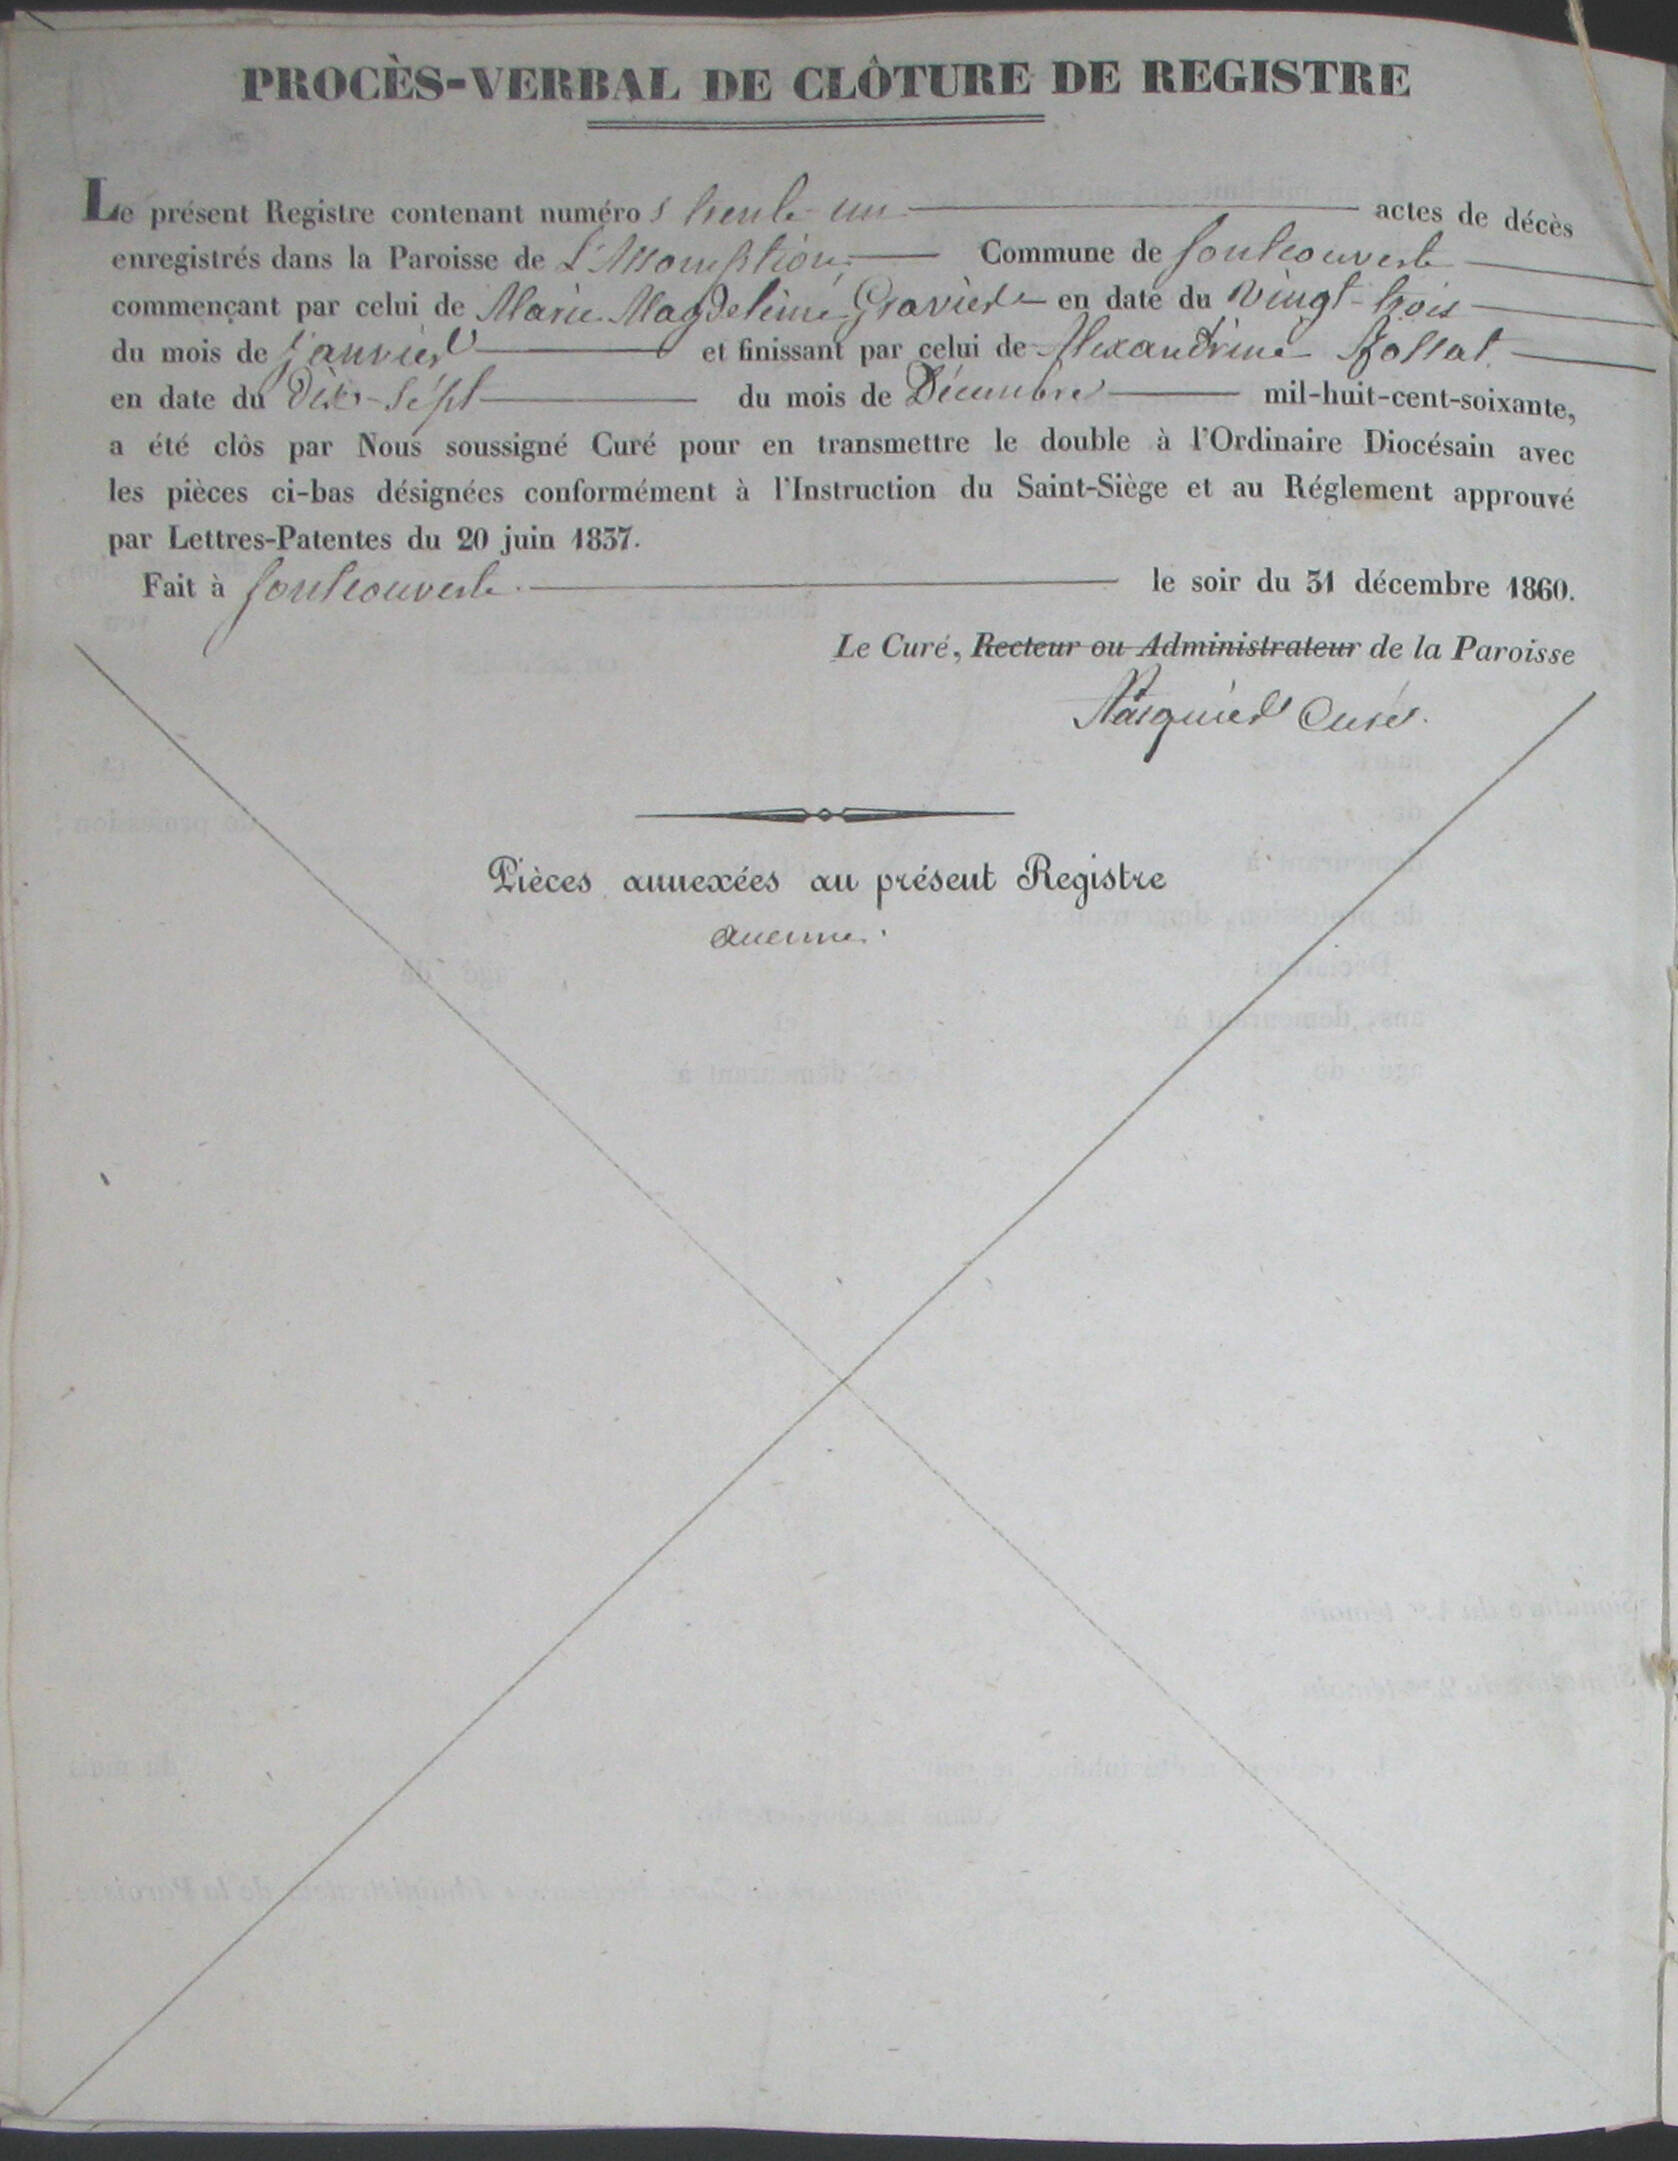 PROCÈS-VERBAL DE CLÔTURE DE REGISTRE
Le présent Registre contenant numéros trente un actes de décès
enregistrés dans la Paroisse de L'Assomption Commune de Fontcouverte
commençant par celui de Marie Magdeleine Gravier en date du Vingt-trois
du mois de janvier et finissant par celui de Alexandrine Bossat
en date du Dix-Sept du mois de Décembre mil-huit-cent-soixante,
a été clòs par Nous soussigné Curé pour en transmettre le double à l'Ordinaire Diocésain avec
les pièces ci-bas désignées conformément à l'Instruction du Saint-Siège et au Réglement approuvé
par Lettres-Patentes du 20 juin 1837.
Fait à Fontcouverte le soir du 31 décembre 1860.
Le Curé, Recteur ou Administrateur de la Paroisse
Pasquier Curé.
Pièces annexées au présent Registre
aucune.